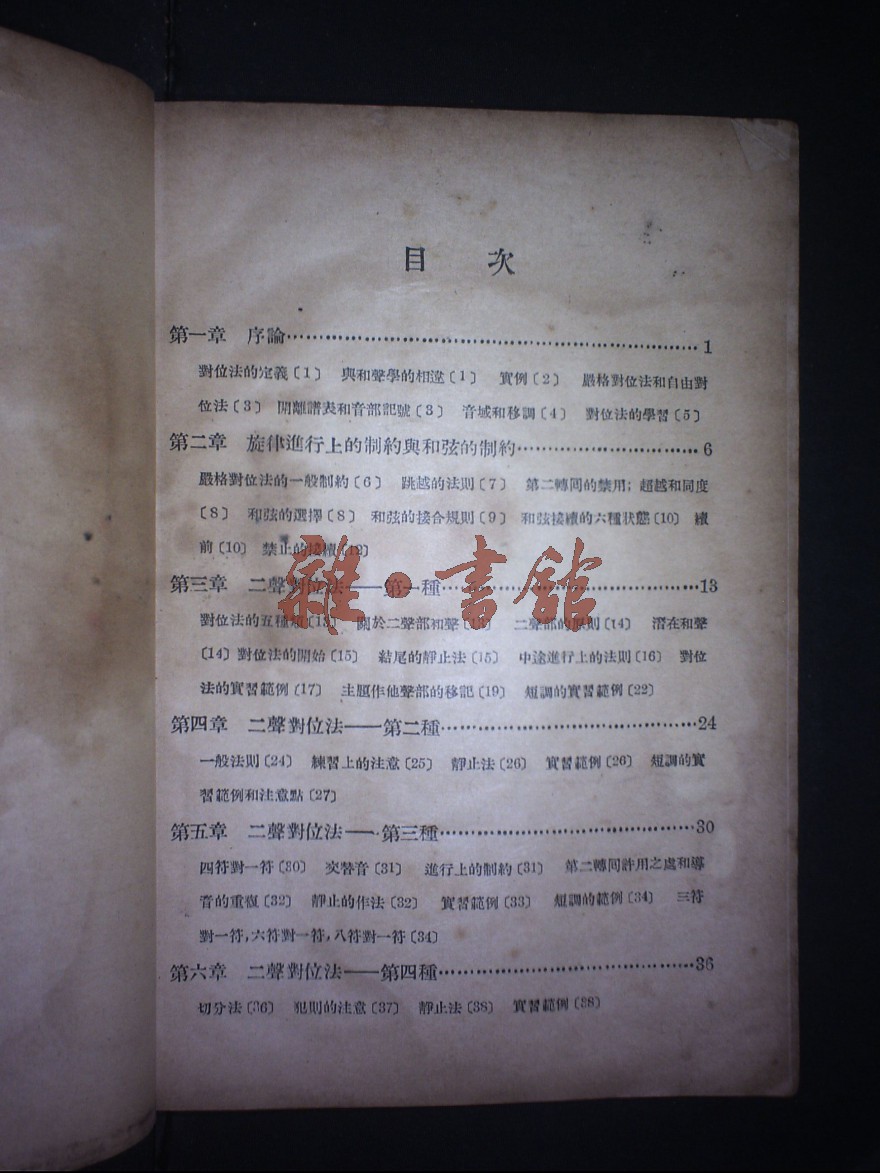 目 次
第一章 序論……………………………………1
對位法的定義〔1〕 與和聲學的相違〔1〕 實例〔2〕 嚴格對位法和自由對
位法〔3〕 開離譜表和音部記號〔3〕 音域和移調〔4〕 對位法的學習〔5〕
第二章 旋律進行上的制約與和弦的制約…………………………6
嚴格對位法的一般制約〔6〕 跳越的法則〔7〕 第二轉回的禁用；超越和同度
〔8〕 和弦的選擇〔8〕 和弦的接合規則〔9〕 和弦接續的六種狀態〔10〕 續
前〔10〕 禁止的接續〔12〕
第三章 二聲對位法——第一種……………………………………13
對位法的五種類〔13〕 關於二聲部和聲〔13〕 二聲部的原則〔14〕 潛在和聲
〔14〕 對位法的開始〔15〕 結尾的靜止法〔15〕 中途進行上的法則〔16〕 對位
法的實習範例〔17〕 主題作他聲部的移記〔19〕 短調的實習範例〔22〕
第四章 二聲對位法——第二種……………………………………24
一般法則〔24〕 練習上的注意〔25〕 靜止法〔26〕 實習範例〔26〕 短調的實
習範例和注意點〔27〕
第五章 二聲對位法——第三種……………………………………30
四符對一符〔30〕 交替音〔31〕 進行上的制約〔31〕 第二轉回許用之處和導
音的重復〔32〕 靜止的作法〔32〕 實習範例〔33〕 短調的範例〔34〕 三符
對一符，六符對一符，八符對一符〔34〕
第六章 二聲對位法——第四種……………………………………36
切分法〔36〕 犯則的注意〔37〕 靜止法〔38〕 實習範例〔38〕
雜·書館